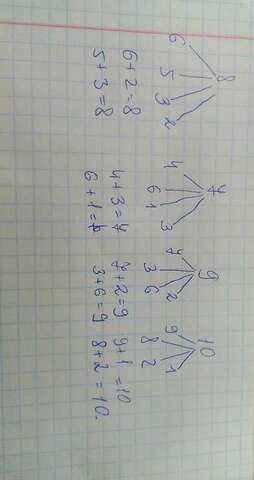 8 7 9 10
6 5 3 2 4 6 1 3 7 3 6 2 9 8 2 1
6+2=8 4+3=7 7+2=9 9+1=10
5+3=8 6+1=7 3+6=9 8+2=10.